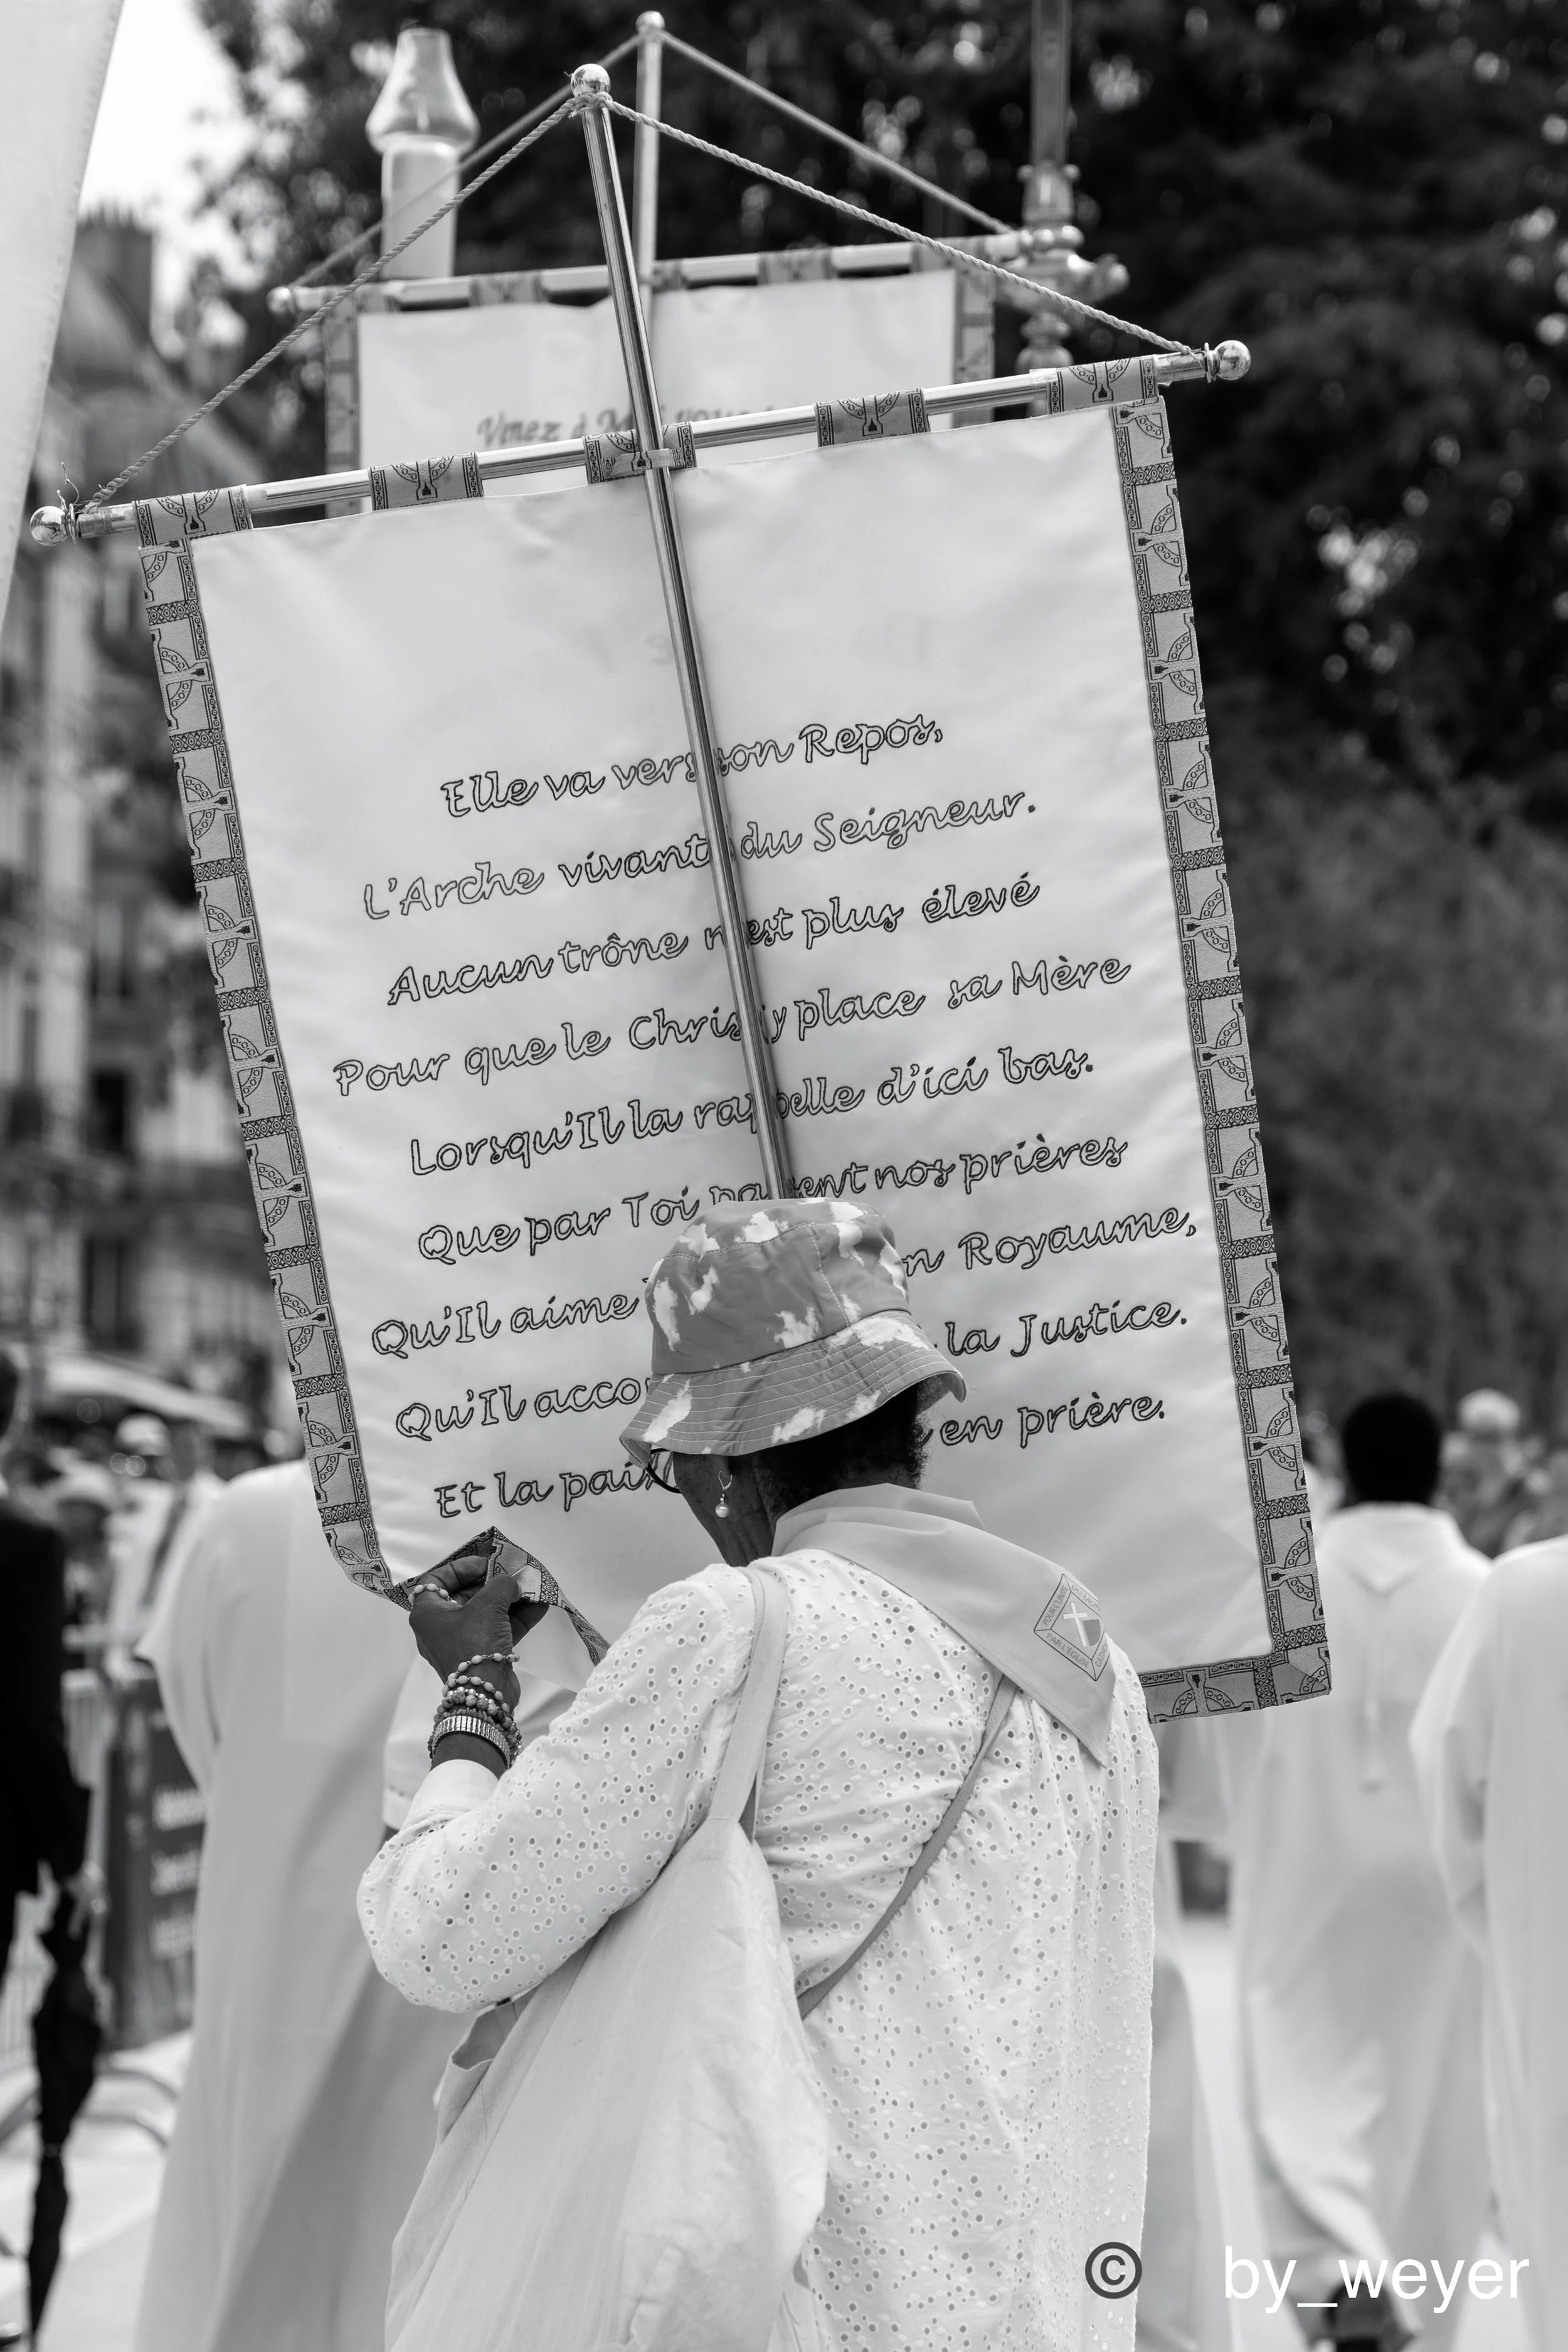 Venez à
Elle va vers son Repos,
L'Arche vivante du Seigneur.
Aucun trône n'est plus élevé
Pour que le Christ y place sa Mère
Lorsqu'Il la rappelle d'ici bas.
Que par Toi passent nos prières
Qu'Il aime Royaume,
Qu'Il la Justice.
Et la paix en prière.
PAR L'ÉGLISE
© by_weyer